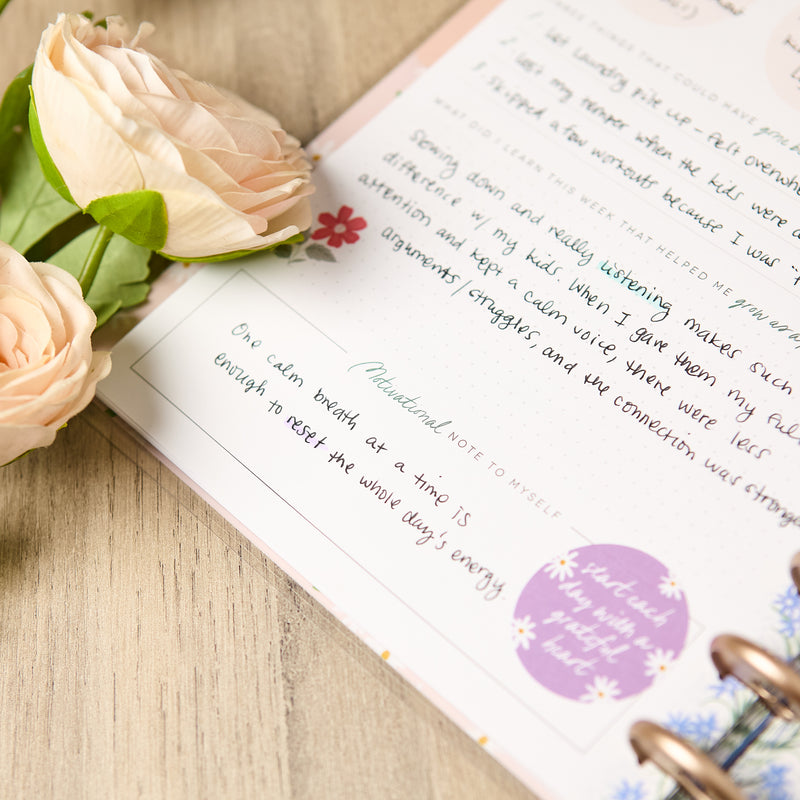 THINGS THAT COULD HAVE gone
1. Let laundry pile up - felt overwh
2. Lost my temper when the kids were
3. Skipped a few workouts because I was
WHAT DID I LEARN THIS WEEK THAT HELPED ME grow as a
Slowing down and really listening makes such
difference w/ my kids. When I gave them my full
attention and kept a calm voice, there were less
arguments/struggles, and the connection was stronge
Motivational NOTE TO MYSELF
One calm breath at a time is
enough to reset the whole day's energy.
start each
day with a
grateful
heart